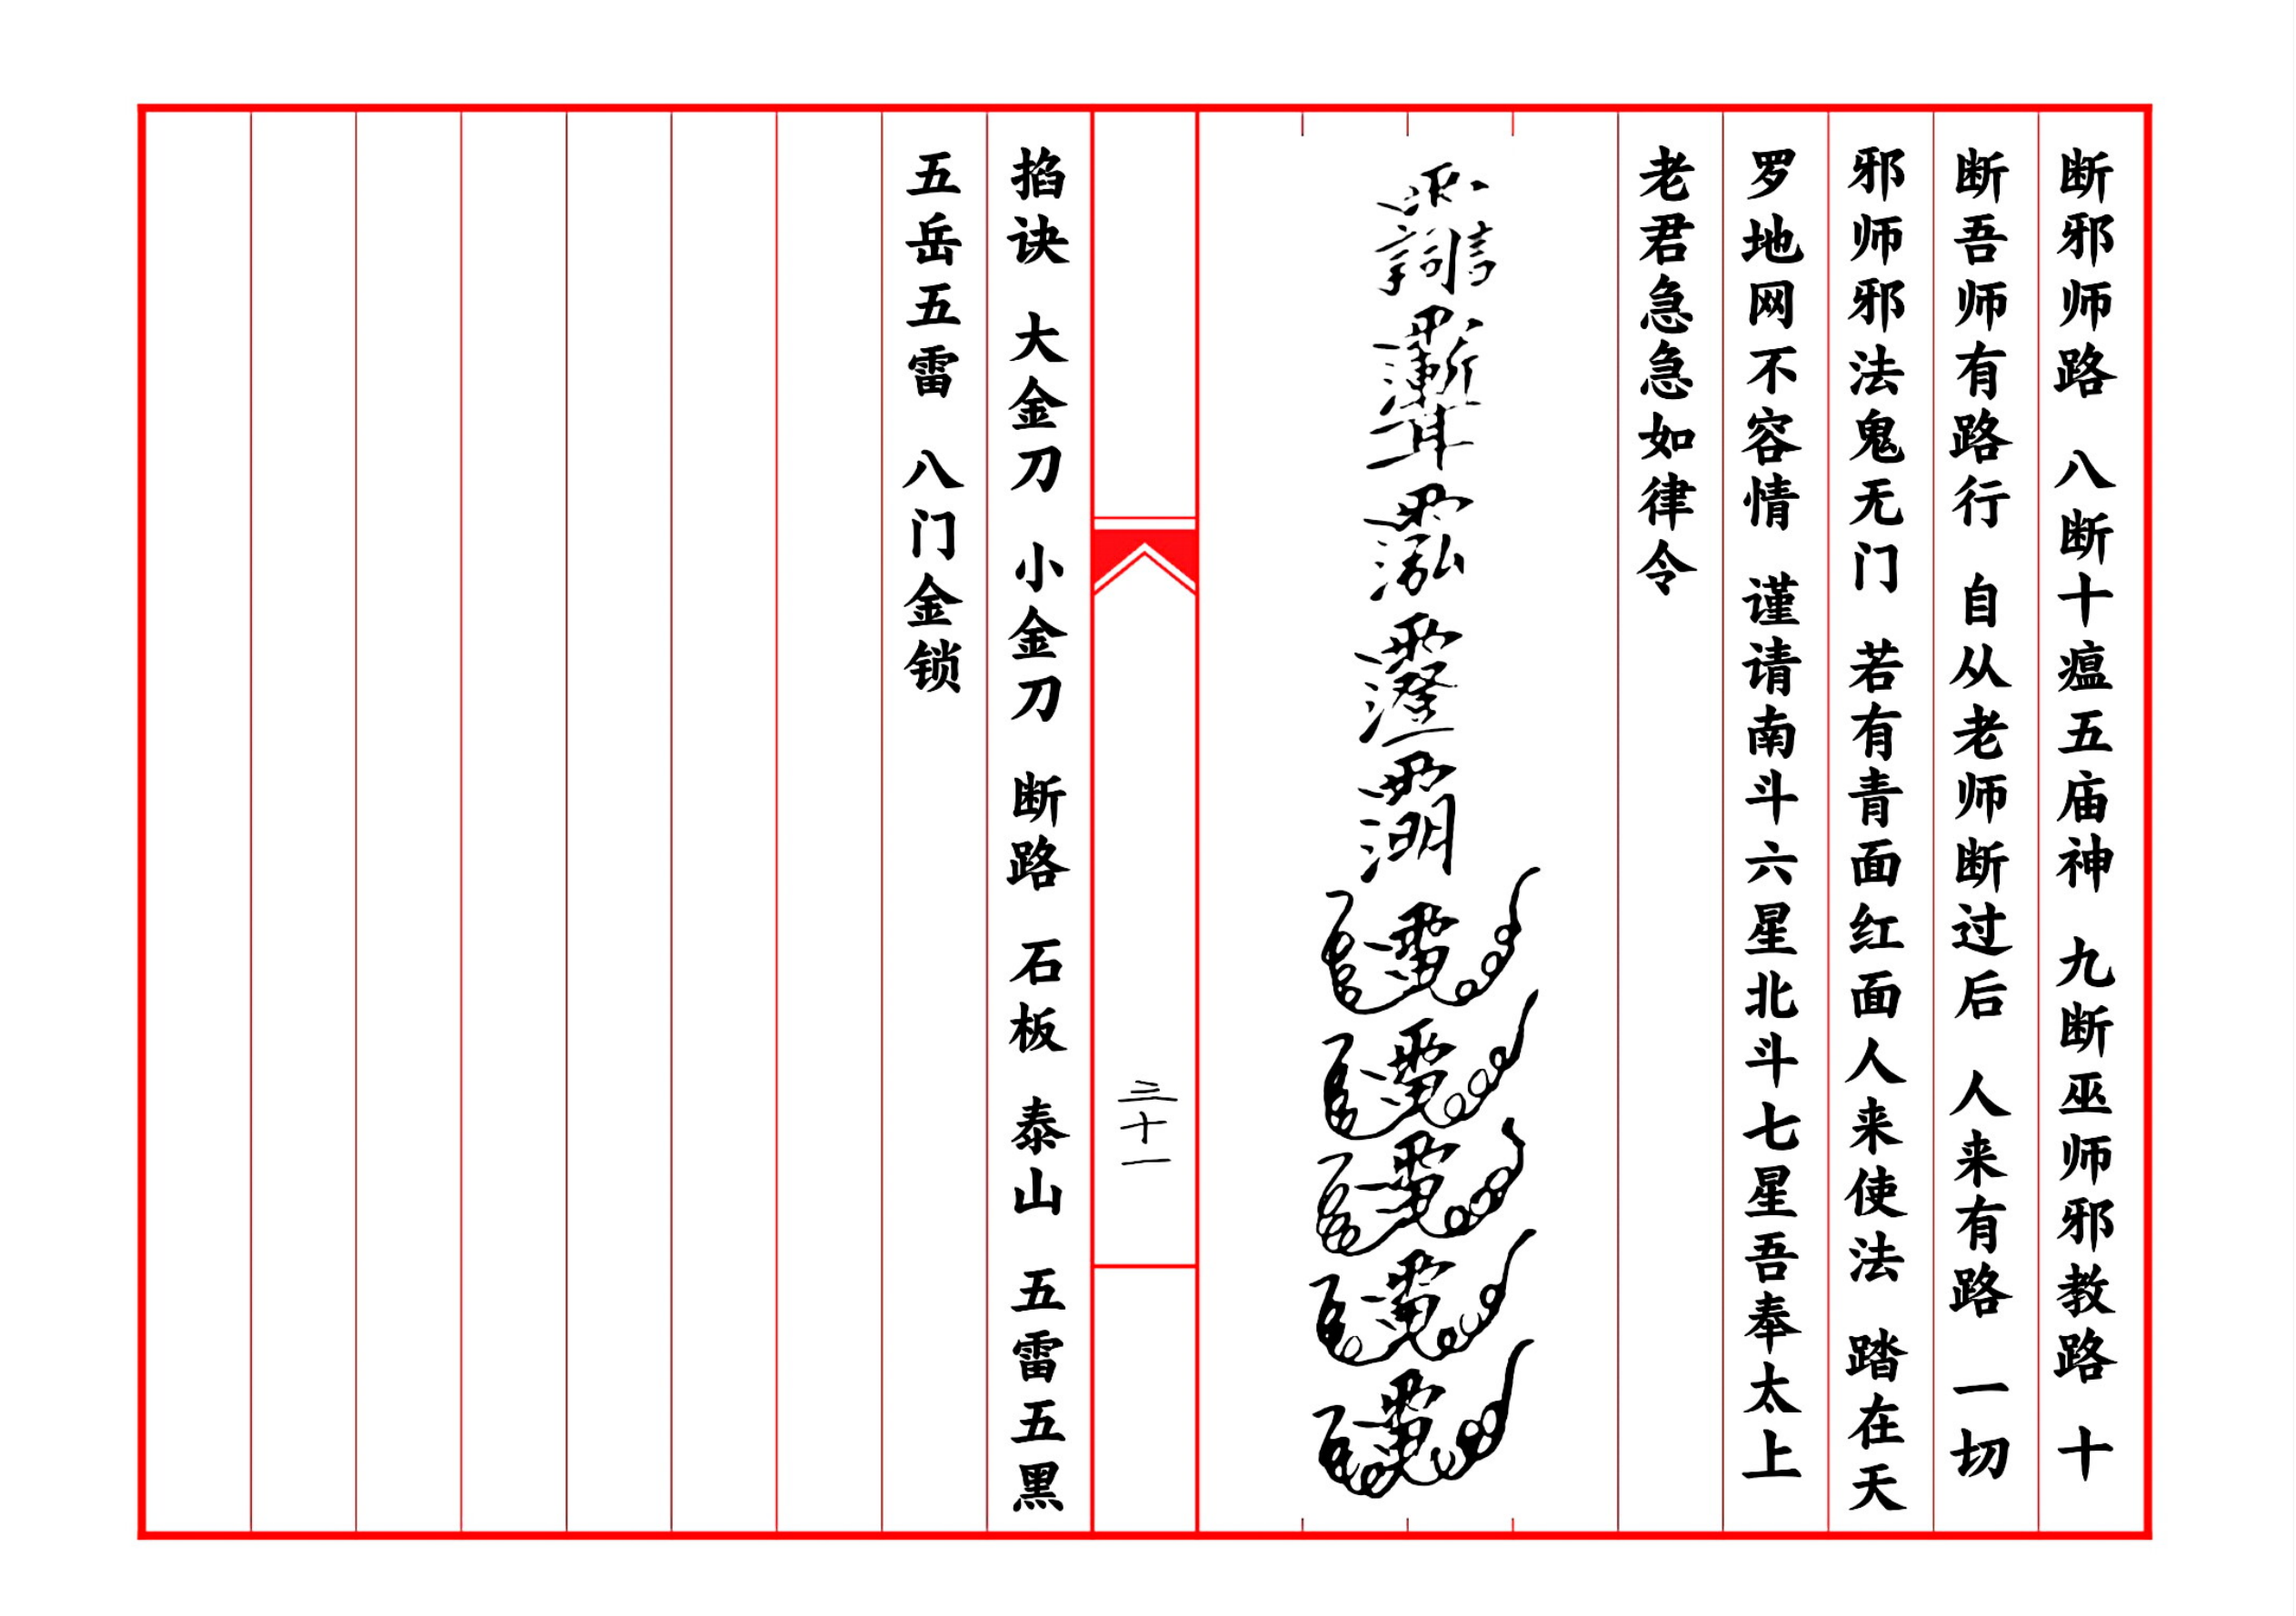 断邪师路 八断十瘟五庙神 九断巫师邪教路 十
断吾师有路行 自从老师断过后 人来有路 一切
邪师邪法鬼无门 若有青面红面人来使法 踏在天
罗地网不容情 谨请南斗六星北斗七星吾奉太上
老君急急如律令
三十一
掐诀 大金刀 小金刀 断路 石板 泰山 五雷五黑
五岳五雷 八门金锁